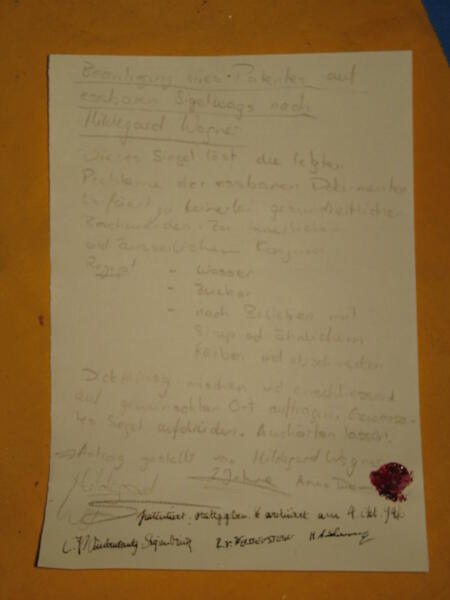 Beantragung eines Patentes auf
essbaren Sigelwags nach
Hildegard Wagner
Dieses Siegel löst die letzten
Probleme der essbaren Dokumente
Es führt zu keinerlei gesundheitlichen
Beschwerden. Zu innerlichem
und äusserlichem Konsum
Rezept
- Wasser
- Zucker
- nach Belieben mit
Sirup od ähnlichem
färben und abschmecken
Dickflüssig mischen und anschliessend
auf gewünschten Ort auftragen. Gewünsch-
tes Siegel aufdrücken. Aushärten lassen.
Antrag gestellt von Hildegard Wagner
Hildegard 2 Jahre Anno
patentiert, stattgegeben & archiviert am 9. Okt.